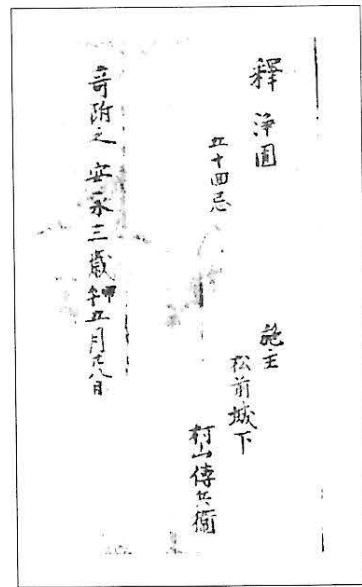 釋 浄圓
五十回忌
施主
松前城下
村山傳兵衛
寄附之 安永三歳甲午五月廿八日